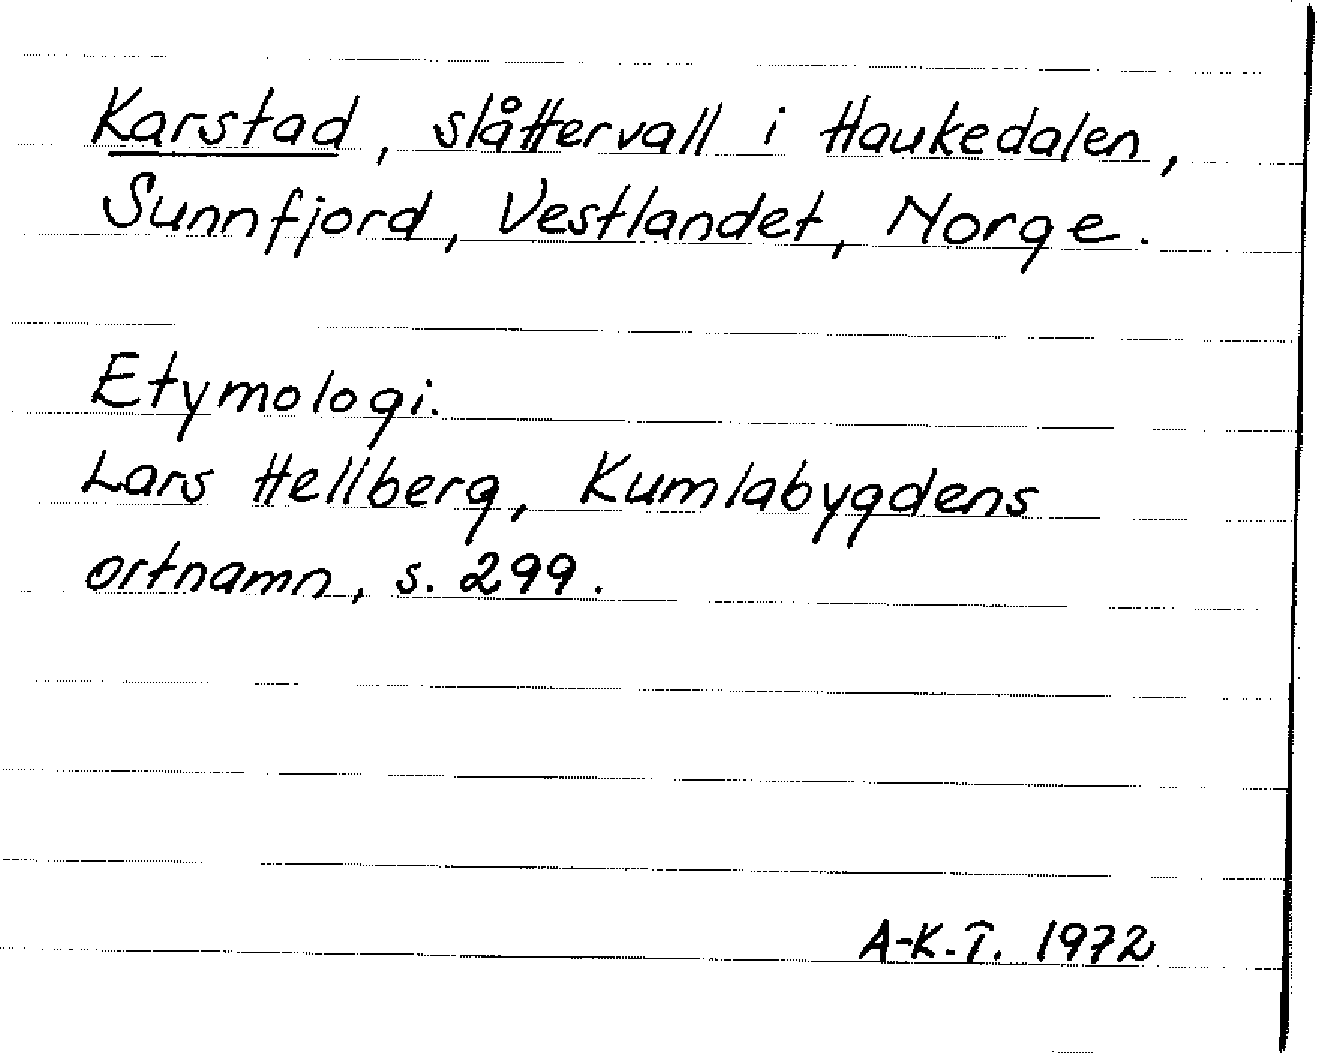 Karstad, slåttervall i Haukedalen,
Sunnfjord, Vestlandet, Norge.
Etymologi.
Lars Hellberg, Kumlabygdens
ortnamn, s. 299.
A-K.T. 1972